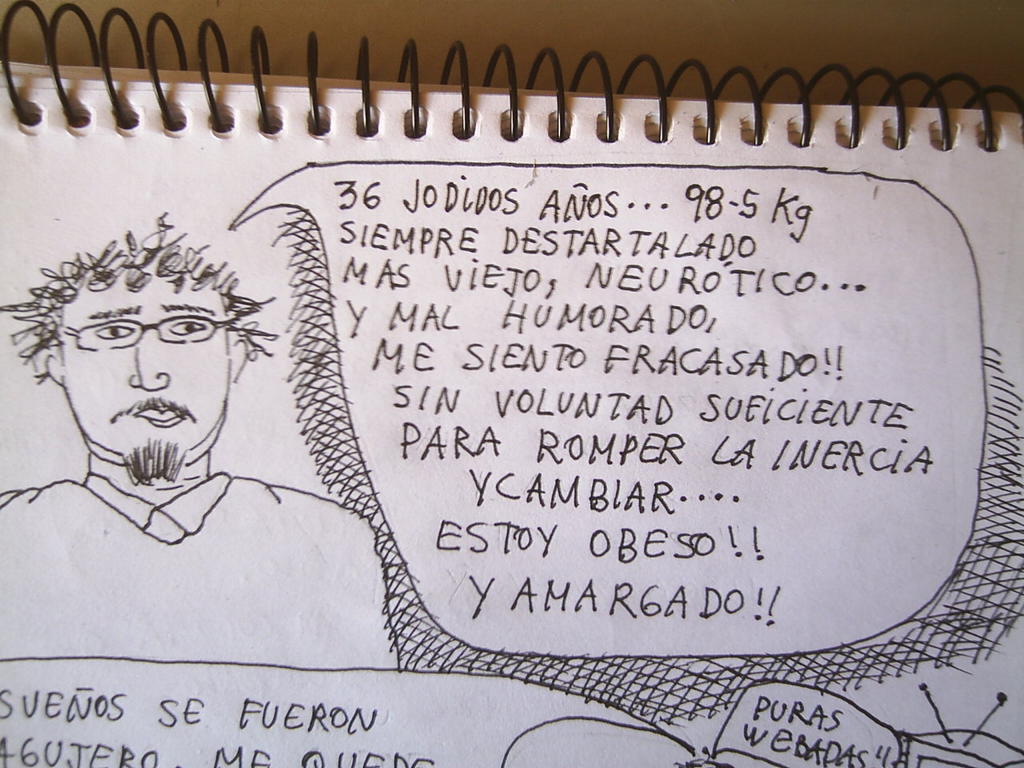 36 JODIDOS AÑOS... 98-5 Kg
SIEMPRE DESTARTALADO
MAS VIEJO, NEURÓTICO...
Y MAL HUMORADO,
ME SIENTO FRACASADO!!
SIN VOLUNTAD SUFICIENTE
PARA ROMPER LA INERCIA
Y CAMBIAR....
ESTOY OBESO!!
Y AMARGADO!!
SUEÑOS SE FUERON
AGUJERO. ME QUEDE
PURAS
WEBADAS!!